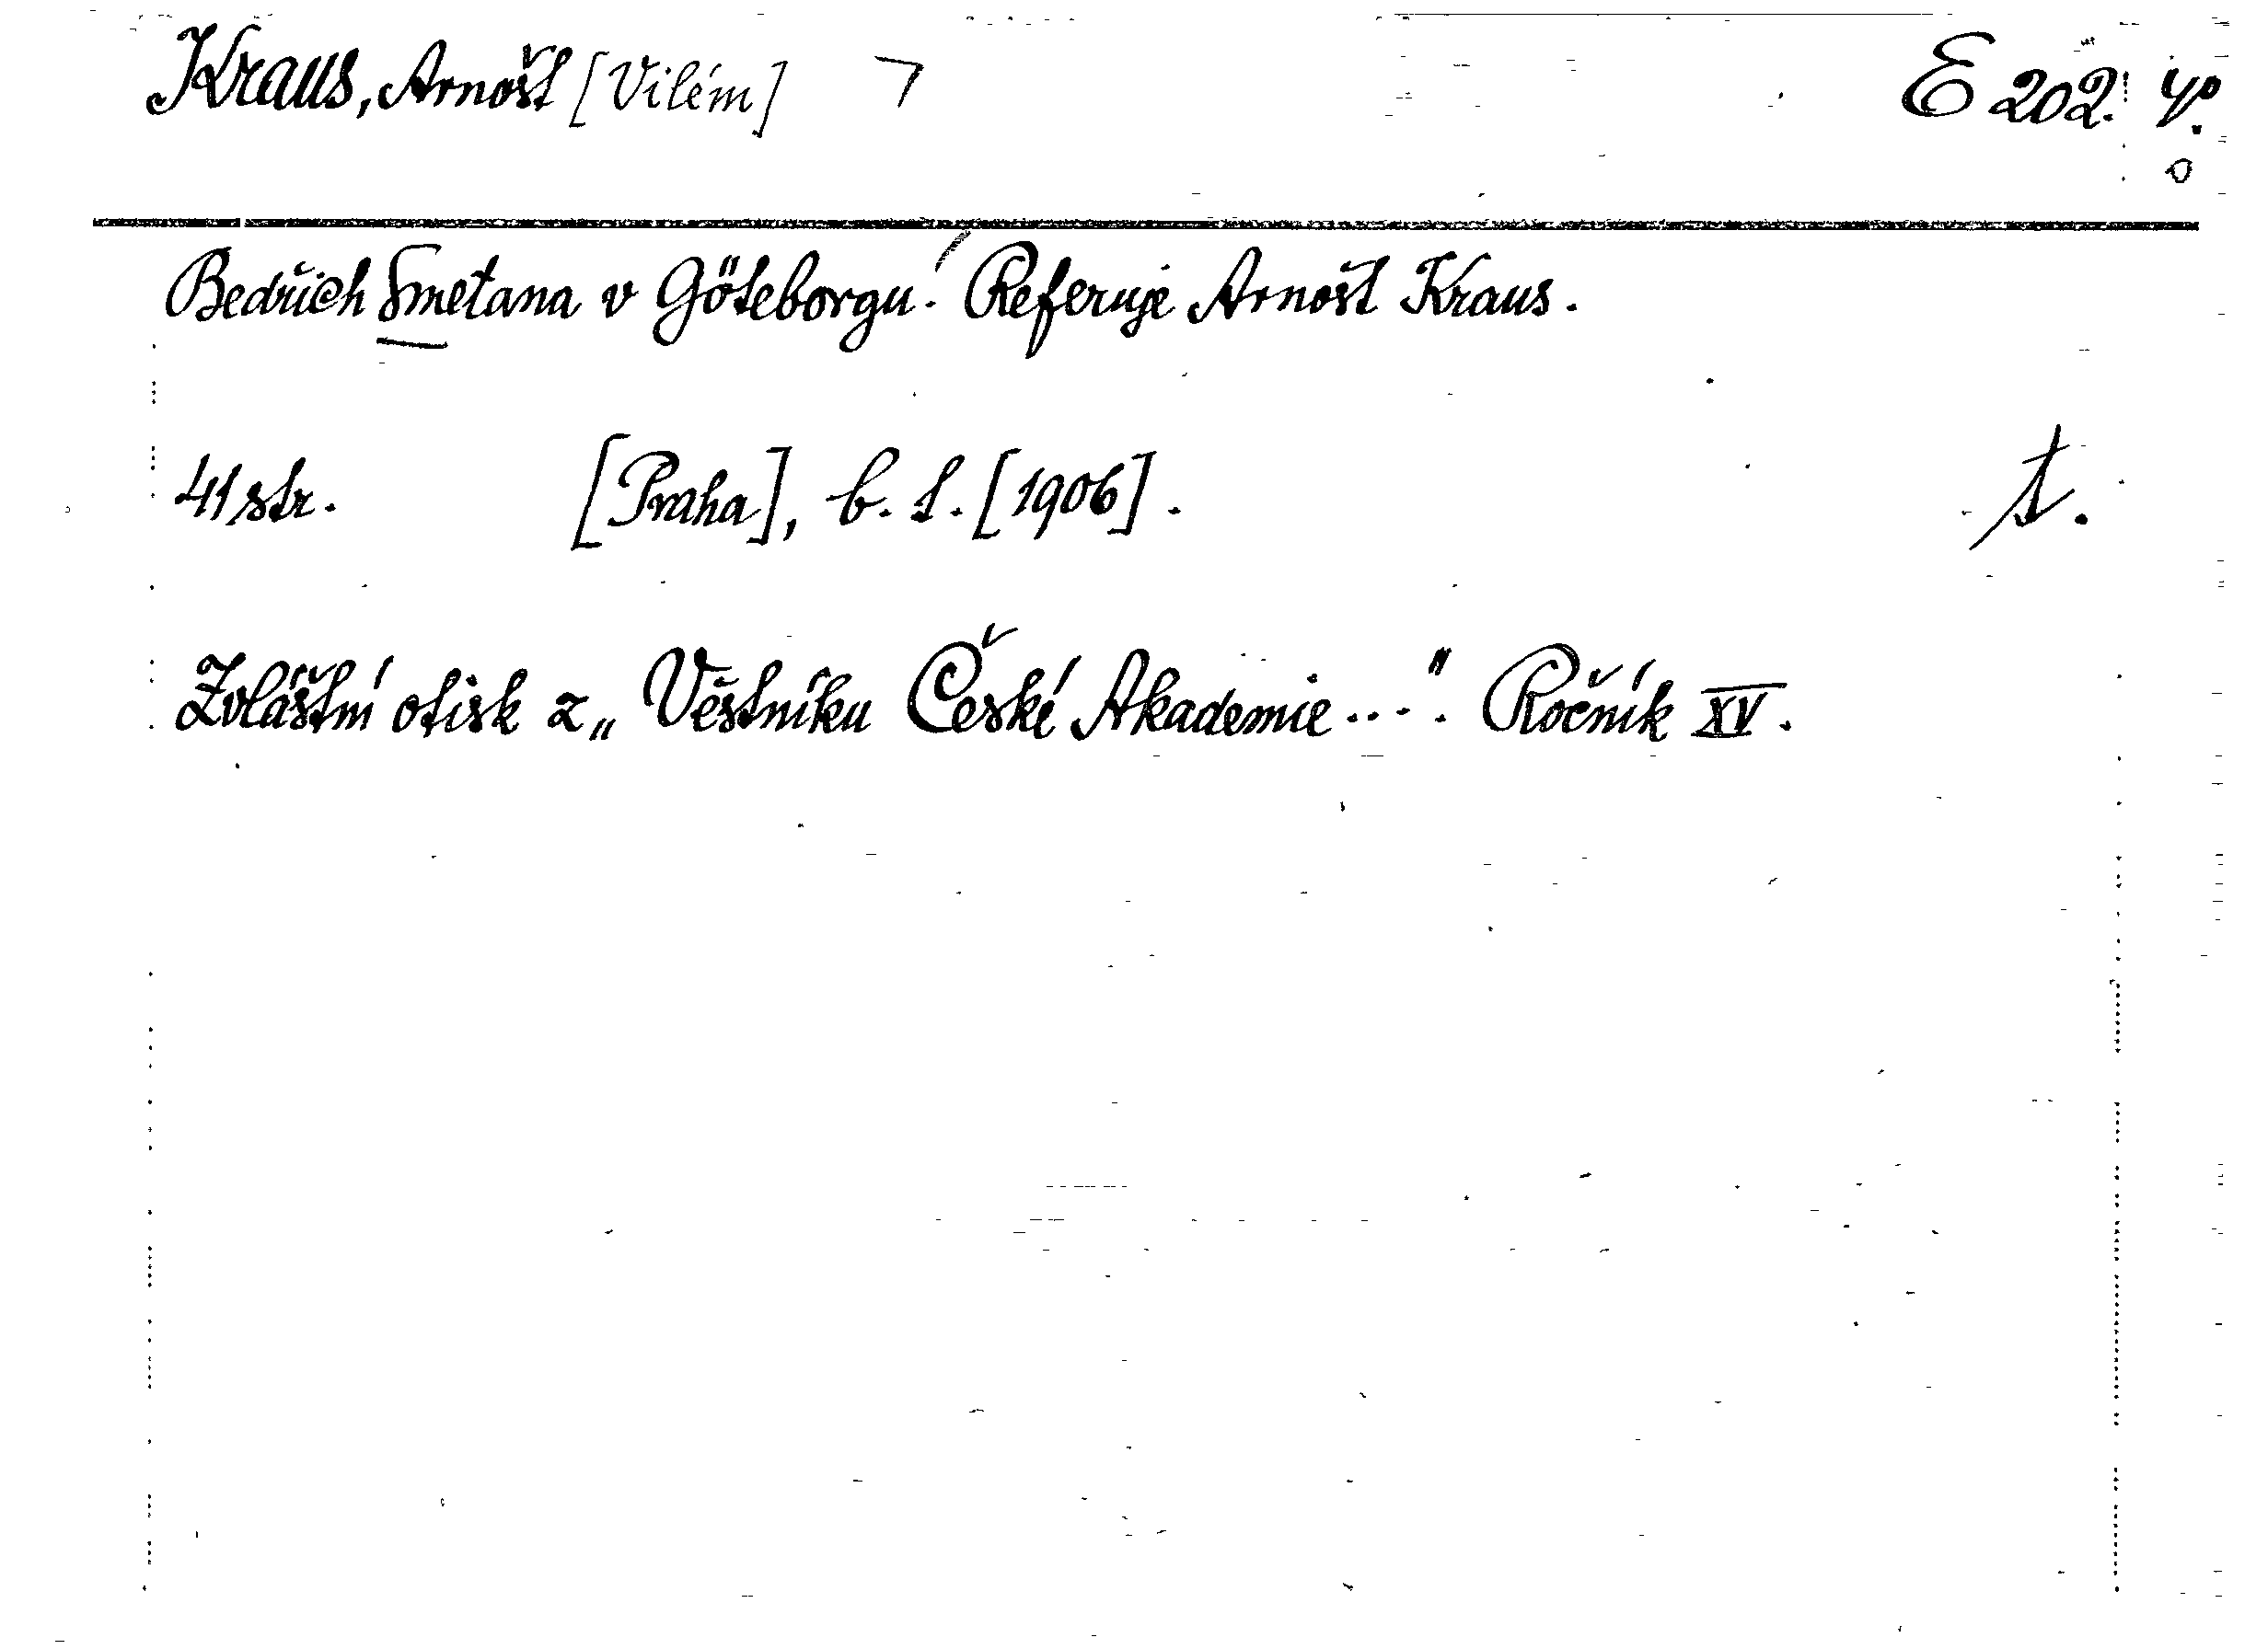 Kraus, Arnošt [Vilém] E 202. 4°.
Bedřich Smetana v Göteborgu. Referuje Arnošt Kraus.
41 str. [Praha], b. l. [1906]. t.
Zvláštní otisk z „Věstníku České Akademie...". Ročník XV.